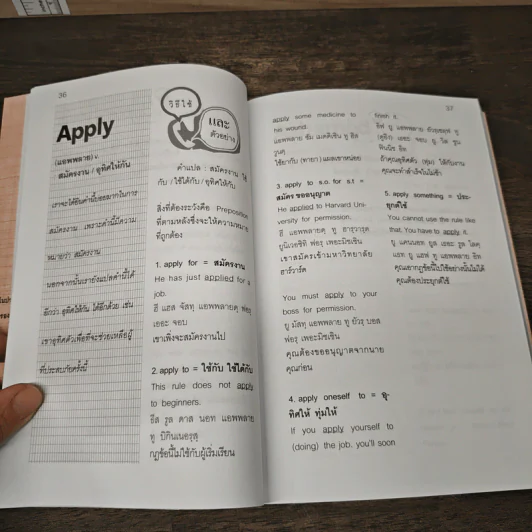 36
Apply
(แอพพลาย) v.
สมัครงาน / อุทิศให้กับ
เราจะได้ยินคำนี้บ่อยมากในการ
สมัครงาน เพราะคำนี้มีความ
หมายว่า สมัครงาน
นอกจากนั้นเรายังแปลคำนี้ได้
อีกว่า อุทิศให้กับ ได้อีกด้วย เช่น
เขาอุทิศตัวเพื่อที่จะช่วยเหลือผู้
ที่ประสบภัยครั้งนี้
วิธีใช้
และ
ตัวอย่าง
คำแปล : สมัครงาน ใช้
กับ / ใช้ได้กับ / อุทิศให้กับ
สิ่งที่ต้องระวังคือ Preposition
ที่ตามหลังซึ่งจะให้ความหมาย
ที่ถูกต้อง
1. apply for = สมัครงาน
He has just applied for a
job.
ฮี แฮส จัสทฺ แอพพลายดฺ ฟอรฺ
เออะ จอบ
เขาเพิ่งจะสมัครงานไป
2. apply to = ใช้กับ ใช้ได้กับ
This rule does not apply
to beginners.
ธีส รูล ดาส นอท แอพพลาย
ทู บิกินเนอรฺสฺ
กฎข้อนี้ไม่ใช้กับผู้เริ่มเรียน
37
apply some medicine to
his wound.
แอพพลาย ซัม เมดดิซิน ทู ฮิส
วูนดฺ
ใช้ยากับ (ทายา) แผลเขาหน่อย
3. apply to s.o. for s.t =
สมัคร ขออนุญาต
He applied to Harvard Uni-
versity for permission.
ฮี แอพพลายดฺ ทู ฮาร์วาร์ด
ยูนิเวอซิที ฟอรฺ เพอะมิซเชิน
เขาสมัครเข้ามหาวิทยาลัย
ฮาร์วาร์ด
You must apply to your
boss for permission.
ยู มัสทฺ แอพพลาย ทู ยัวรฺ บอส
ฟอรฺ เพอะมิซเชิน
คุณต้องขออนุญาตจากนาย
คุณก่อน
4. apply oneself to = อุ-
ทิศให้ ทุ่มให้
If you apply yourself to
(doing) the job, you'll soon
finish it.
อีฟ ยู แอพพลาย ยัวเซลฟฺ ทู
(ดูอิง) เธอะ จอบ ยู วิล ซูน
ฟินนิช อิท
ถ้าคุณอุทิศตัว (ทุ่ม) ให้กับงาน
คุณจะทำสำเร็จในไม่ช้า
5. apply something = ประ-
ยุกต์ใช้
You cannot use the rule like
that. You have to apply it.
ยู แคนนอท ยูส เธอะ รูล ไลคฺ
แธท ยู แฮฟ ทู แอพพลาย อิท
คุณเอากฎข้อนี้ไปใช้อย่างนั้นไม่ได้
คุณต้องประยุกต์ใช้